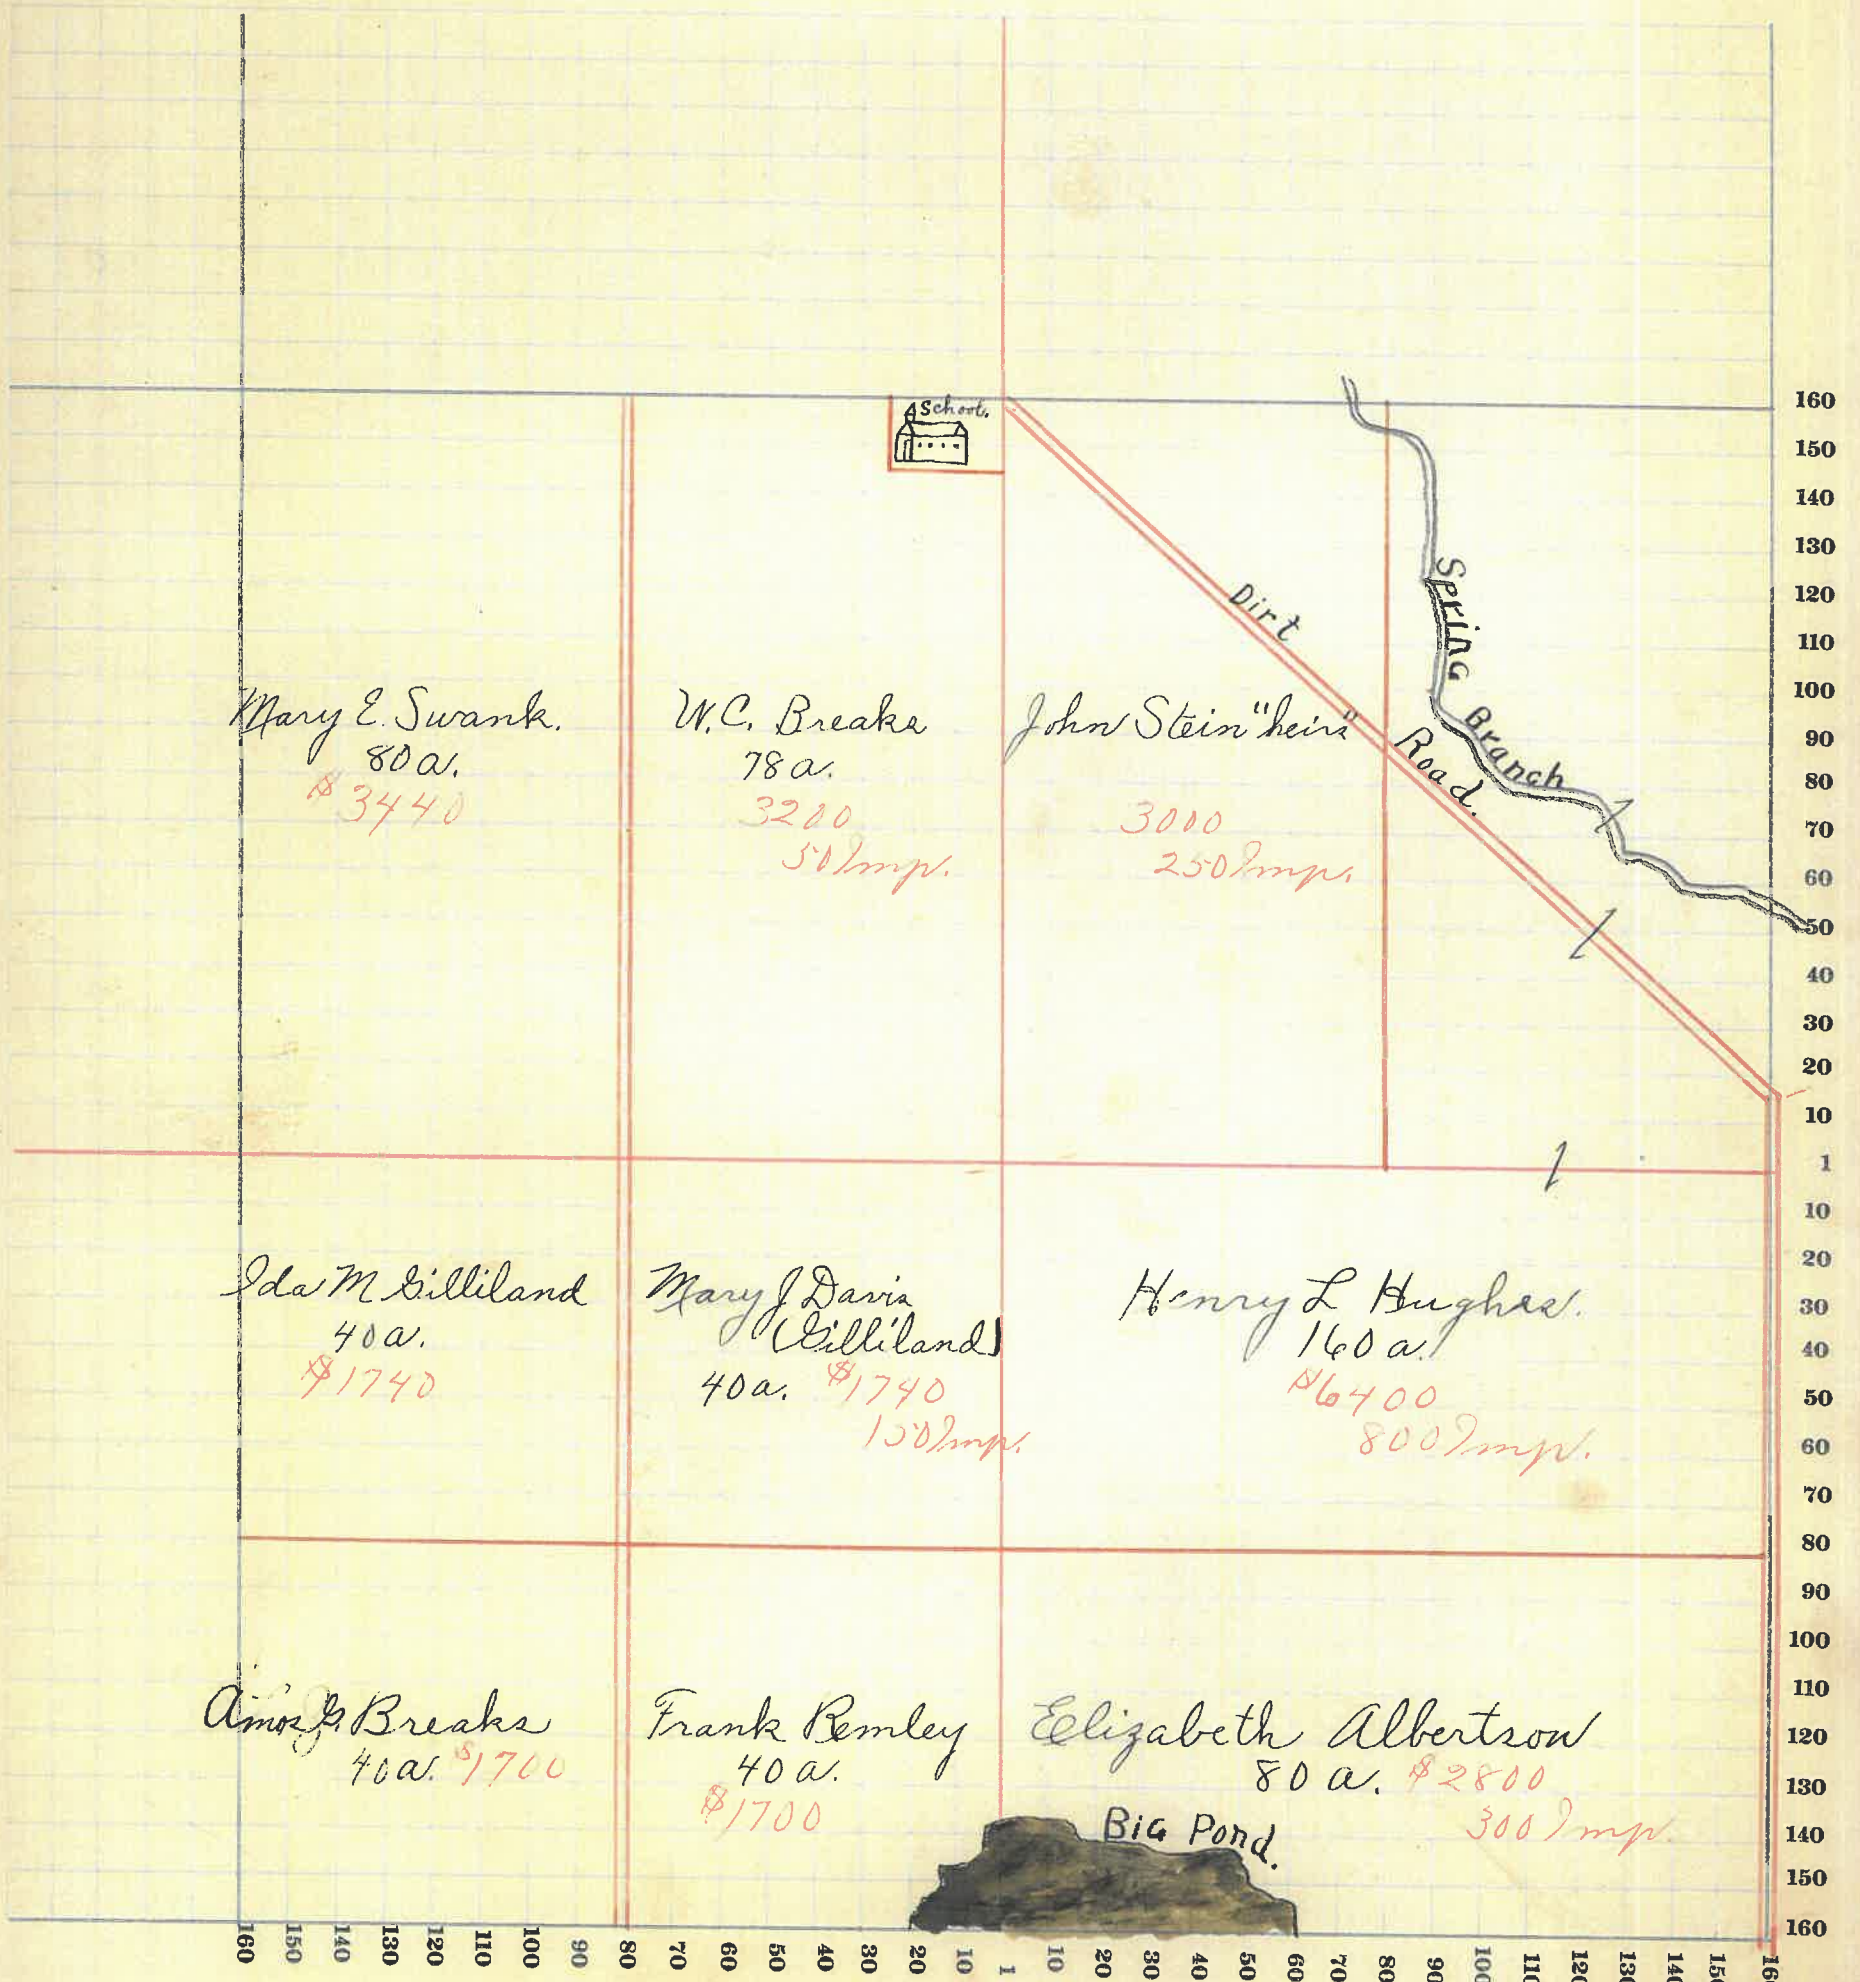 School.
Dirt
Road.
Spring
Branch
Mary E. Swank.
80 a.
$3440
W.C. Breaks
78 a.
3200
50 Imp.
John Stein "heirs"
3000
250 Imp.
Ida M Gilliland
40 a.
$1740
Mary J Davis
(Gilliland)
40 a. $1740
150 Imp.
Henry L Hughes.
160 a.
$6400
800 Imp.
Amos G. Breaks
40 a. $1700
Frank Remley
40 a.
$1700
Elizabeth Albertson
80 a. $2800
300 Imp.
Big Pond.
160
150
140
130
120
110
100
90
80
70
60
50
40
30
20
10
1
10
20
30
40
50
60
70
80
90
100
110
120
130
140
150
160
160 150 140 130 120 110 100 90 80 70 60 50 40 30 20 10 1 10 20 30 40 50 60 70 80 90 100 110 120 130 140 150 160